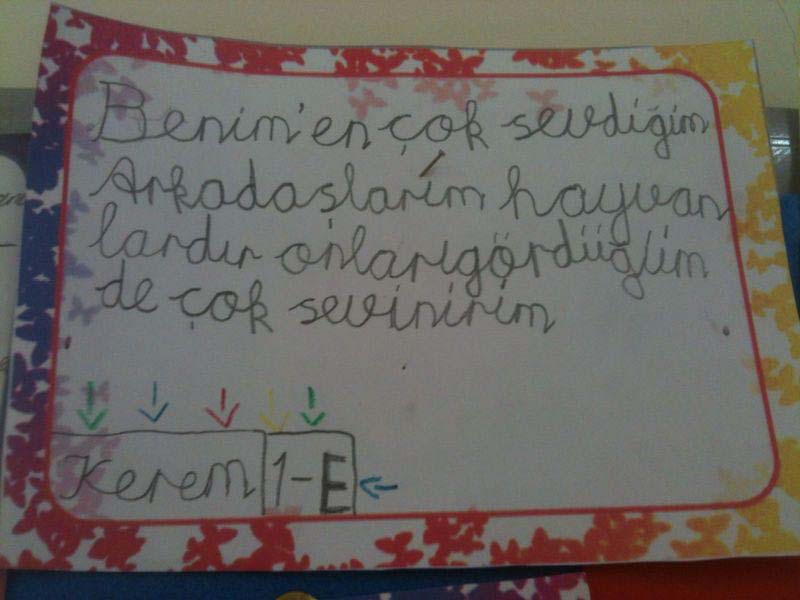 Benim'en çok sevdiğim
Arkadaşlarim hayvan
lardır onlarıgördüğüm
de çok sevinirim
Kerem 1-E